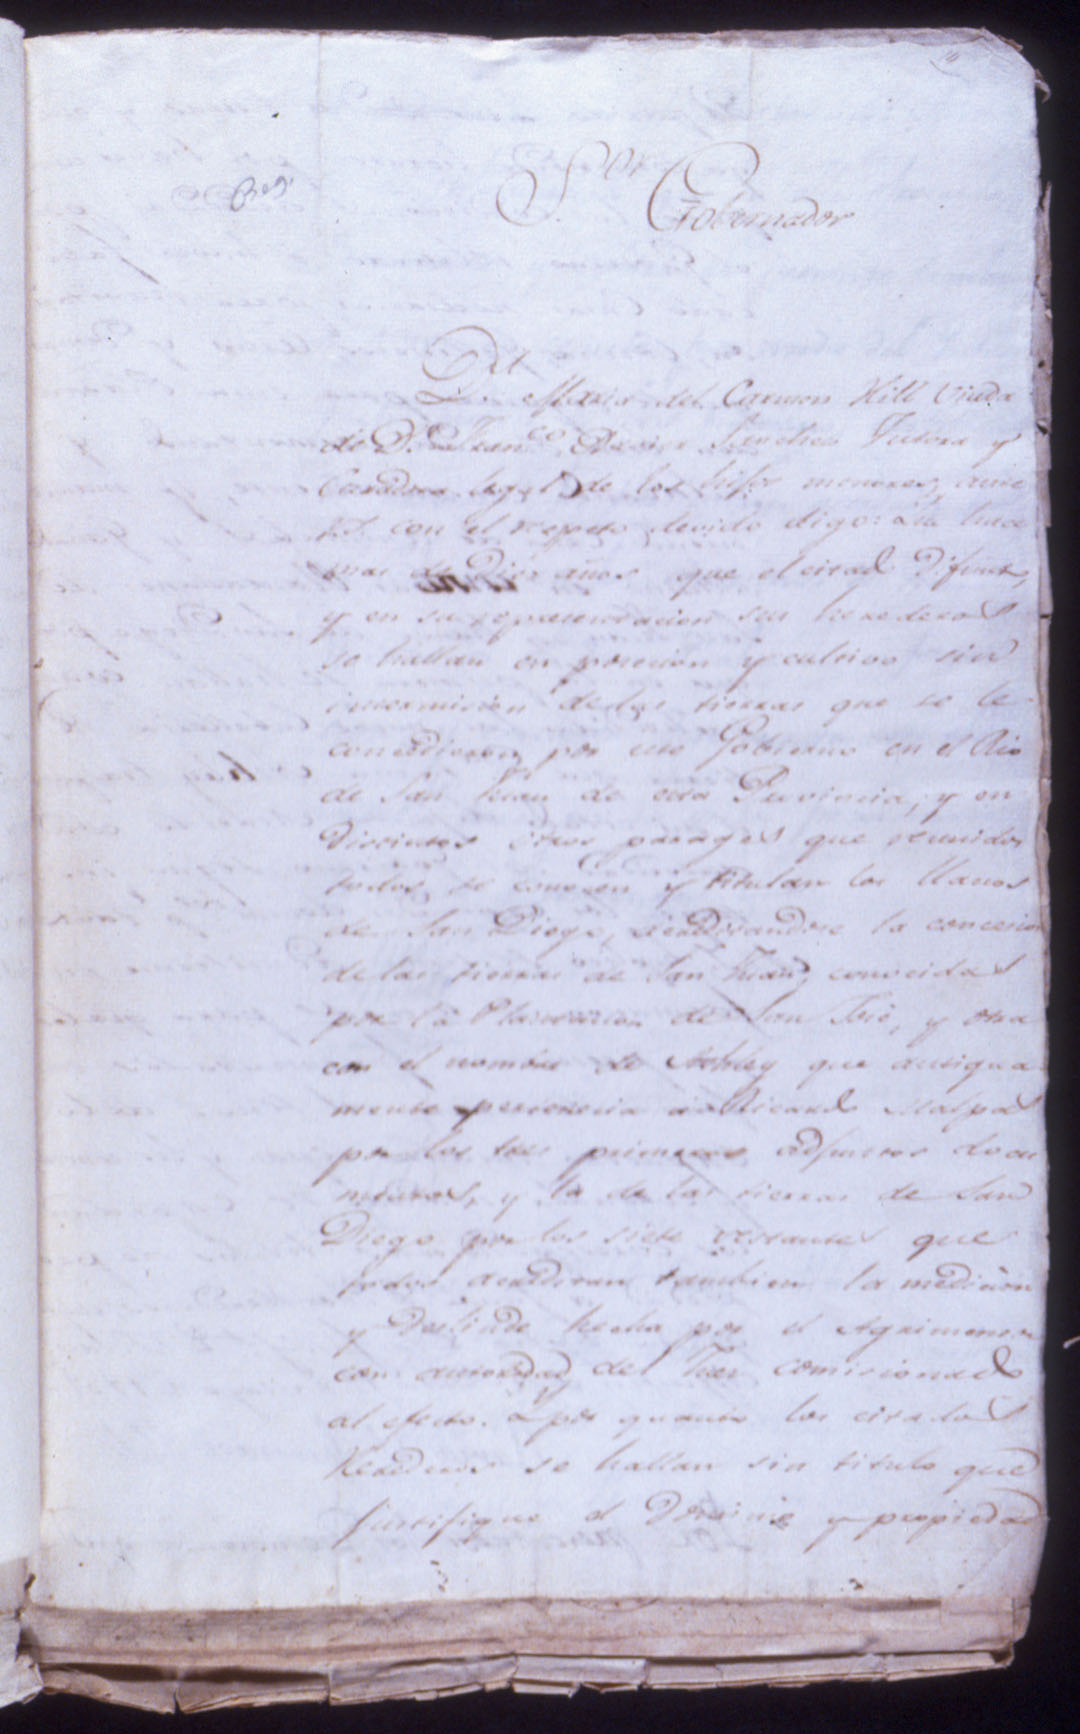 Sor
Gobernador
Da. Maria del Carmen Hill Viuda
de Dn. Franco. Xavier Sanchez Tutora y
Curadora legal de los hijos menores, ante
V.S. con el respeto devido digo: hace
mas de Diez años que el citado Difunto,
y en su representacion sus herederos
se hallan en posecion y cultivo sin
intermision de las tierras que se le
concedieron por este Gobierno en el Rio
de San Juan de esta Provincia, y en
Distintos otros parages que reunidos
todos se conocen y titulan los llanos
de San Diego, acreditandose la concecion
de las tierras de San Juan, conocidas
por la Plantacion de San José, y otra
con el nombre de Ashley que antigua
mente pertenecia a Ricardo Malpas
por los tres primeros adjuntos docu
mentos, y la de las tierras de San
Diego por los siete restantes que
todos acreditan tambien la medicion
y Deslinde hecha por el Agrimensor
con autoridad del Juez comicionado
al efecto. Y por quanto los citados
Herederos se hallan sin titulo que
justifique el Dominio y propiedad